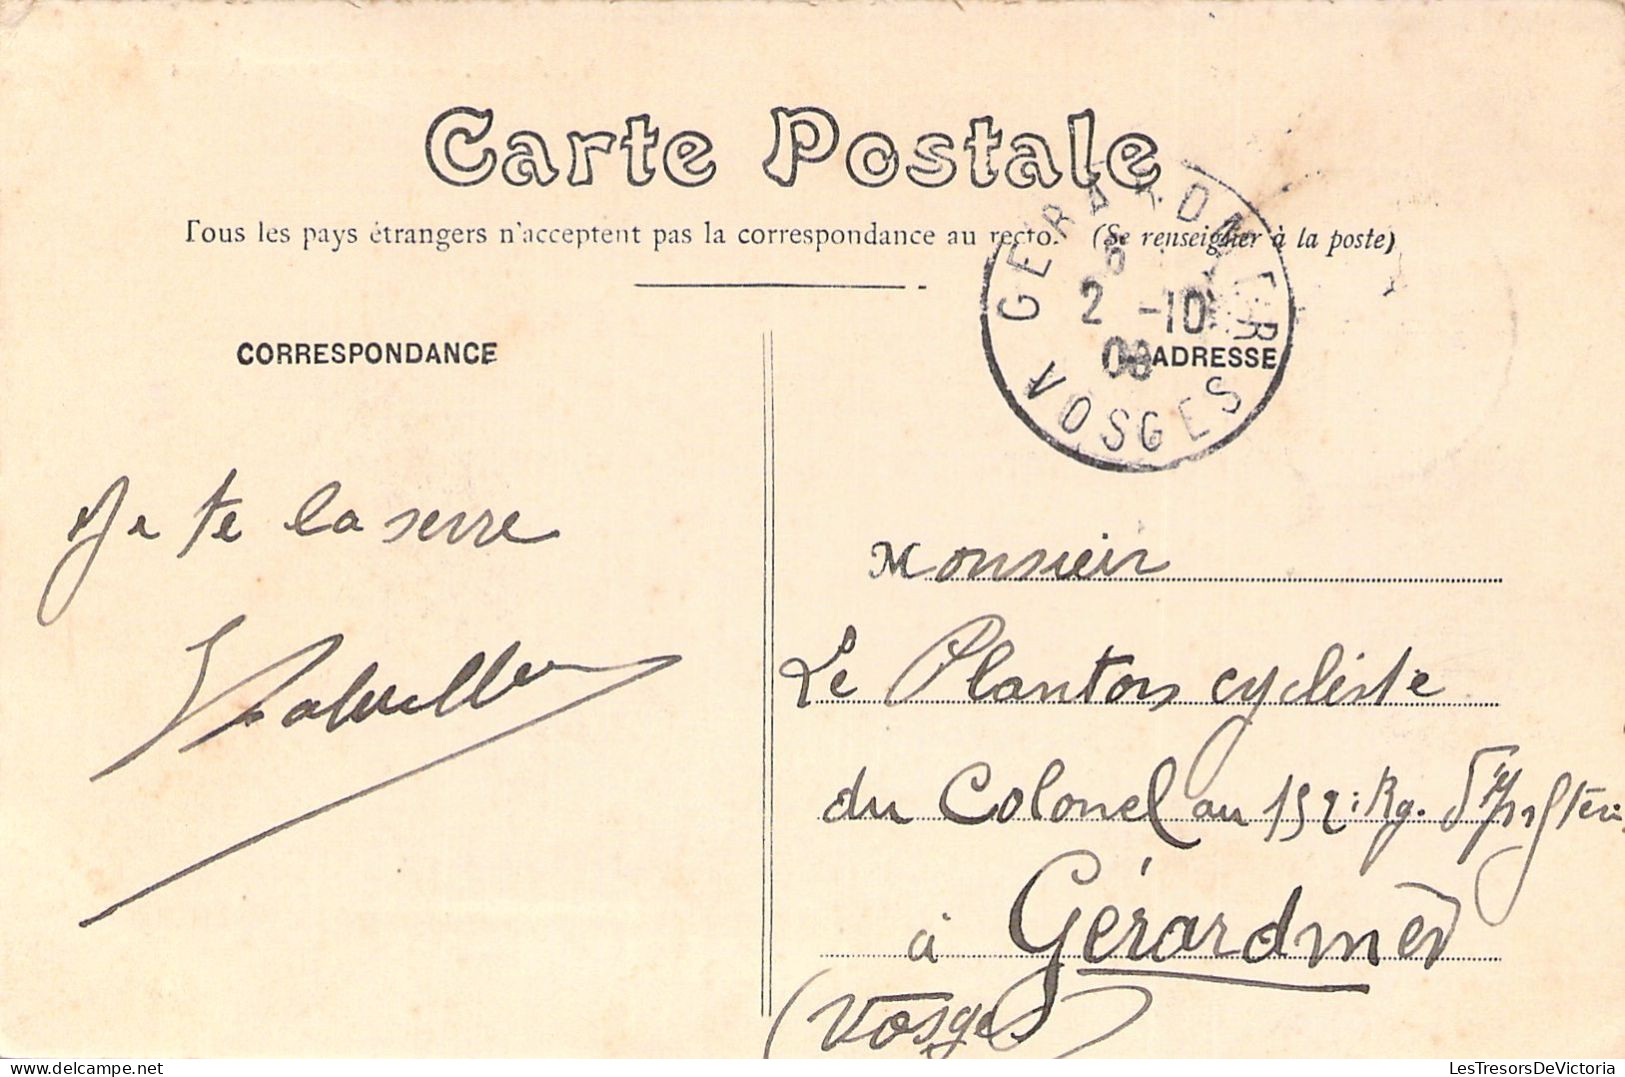 Carte Postale
Tous les pays étrangers n'acceptent pas la correspondance au recto. (Se renseigner à la poste)
GERARDMER
2 -10
08
VOSGES
CORRESPONDANCE
ADRESSE
Je te la serre
Monsieur
Le Planton cycliste
du Colonel au 152e Rg. d'Infterie
à Gérardmèr
(Vosges)
LesTresorsDeVictoria